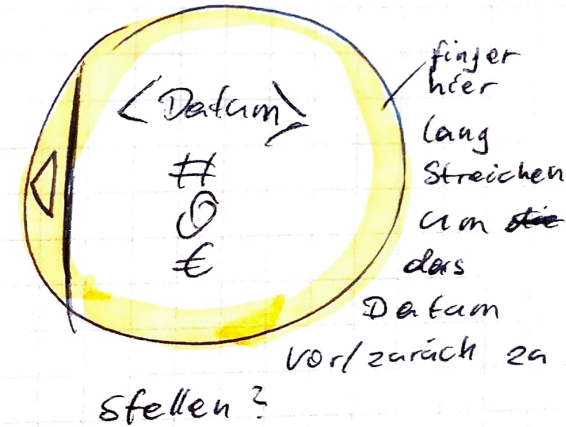 <Datum>
#
€
finger
hier
lang
Streichen
um
das
Datum
vor/zurück zu
stellen?